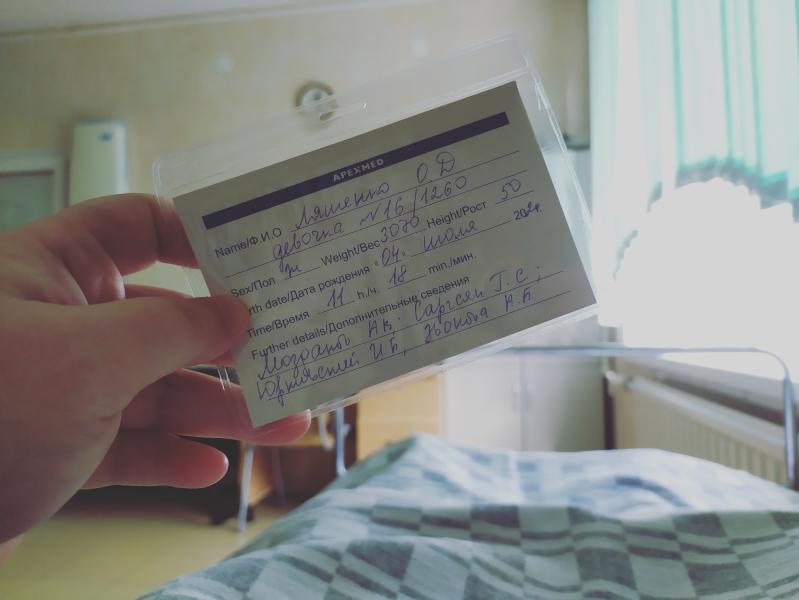 APEXMED
Name/Ф.И.О Ляшенко О Д
девочка №16/1260
Sex/Пол Weight/Вес 3070 Height/Рост 50
rth date/Дата рождения "04" июля 202
Time/Время 11 h./ч. 18 min./мин.
Further details/Дополнительные сведения
Ак. Саргсян Т.С.,
И.Б, А.Б